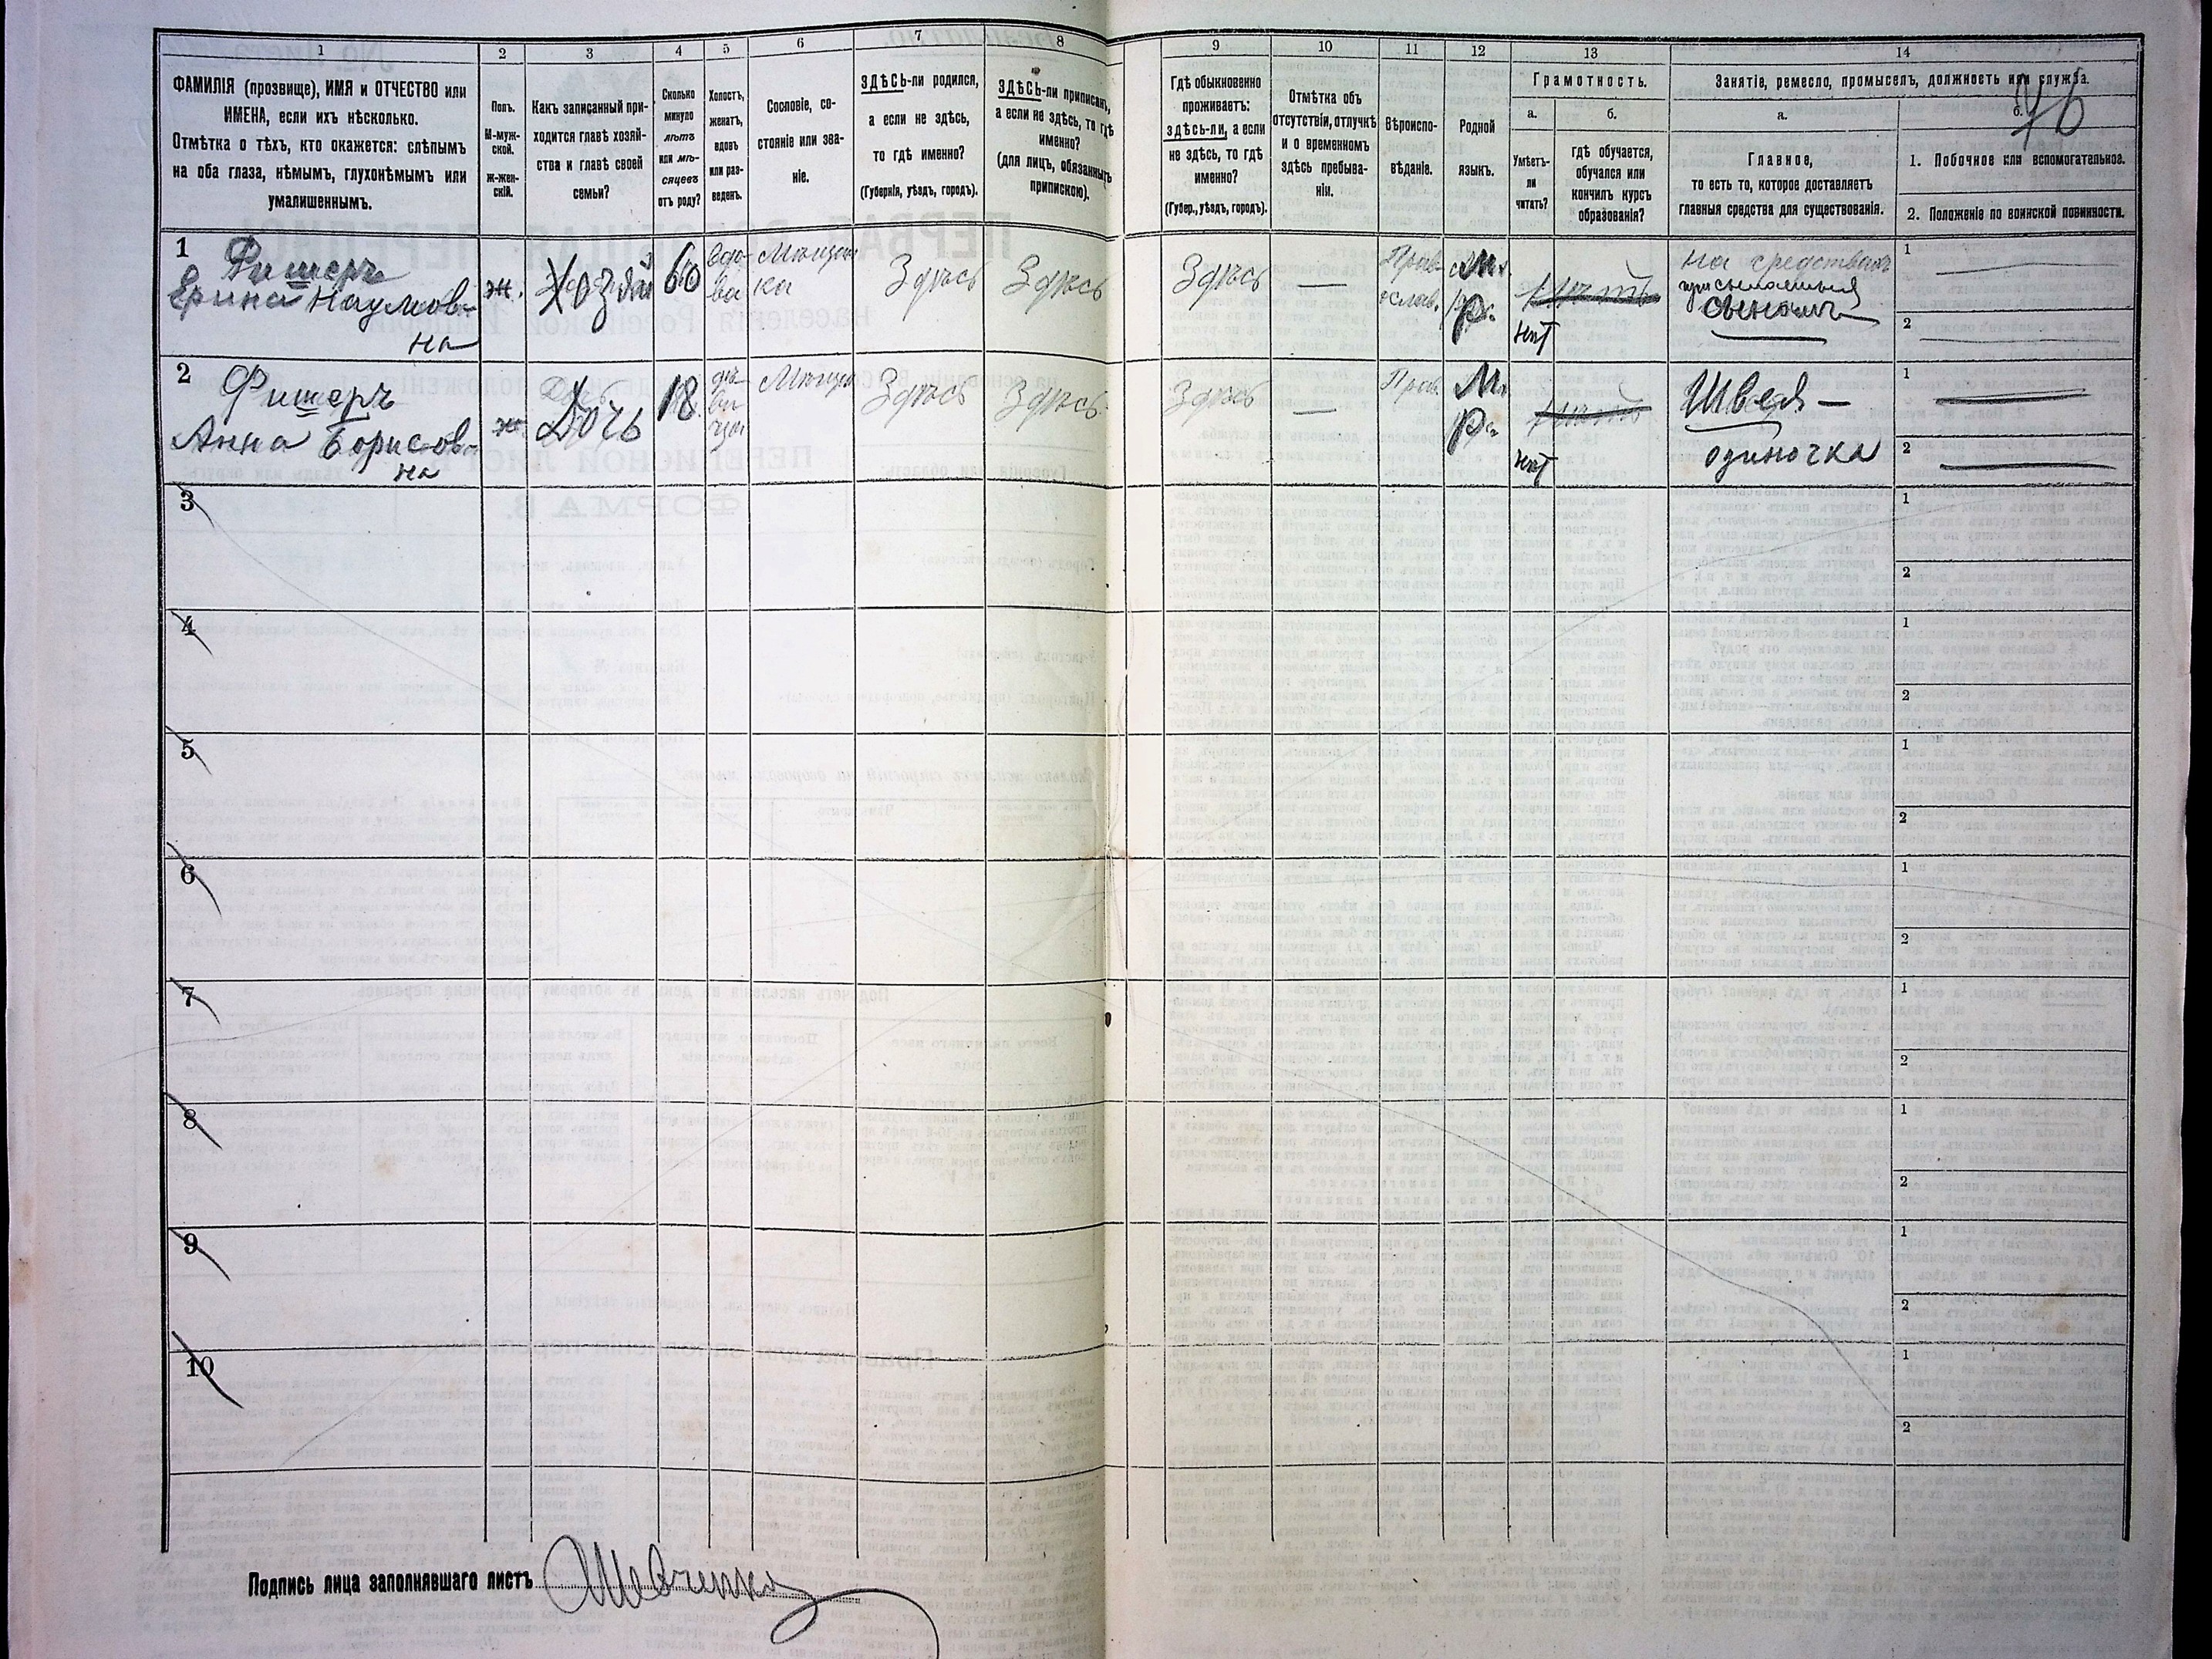 1
2
3
4
5
6
7
8
9
10
11
12
13
14
ФАМИЛІЯ (прозвище), ИМЯ и ОТЧЕСТВО или
ИМЕНА, если ихъ нѣсколько.
Отмѣтка о тѣхъ, кто окажется: слѣпымъ
на оба глаза, нѣмымъ, глухонѣмымъ или
умалишеннымъ.
Полъ.
М-муж-
ской.
Ж-жен-
скій.
Какъ записанный при-
ходится главѣ хозяй-
ства и главѣ своей
семьи?
Сколько
минуло
лѣтъ
или мѣ-
сяцевъ
отъ роду?
Холостъ,
женатъ,
вдовъ
или раз-
веденъ.
Сословіе, со-
стояніе или зва-
ніе.
ЗДѢСЬ-ли родился,
а если не здѣсь,
то гдѣ именно?
(Губернія, уѣздъ, городъ).
ЗДѢСЬ-ли приписанъ,
а если не здѣсь, то гдѣ
именно?
(для лицъ, обязанныхъ
припискою).
Гдѣ обыкновенно
проживаетъ:
здѣсь-ли, а если
не здѣсь, то гдѣ
именно?
(Губер., уѣздъ, городъ).
Отмѣтка объ
отсутствіи, отлучкѣ
и о временномъ
здѣсь пребыва-
ніи.
Вѣроиспо-
вѣданіе.
Родной
языкъ.
Грамотность.
а.
б.
Умѣетъ-
ли
читать?
гдѣ обучается,
обучался или
кончилъ курсъ
образованія?
Занятіе, ремесло, промыселъ, должность или служба.
а.
б.
76
Главное,
то есть то, которое доставляетъ
главныя средства для существованія.
1. Побочное или вспомогательное.
2. Положеніе по воинской повинности.
1
Фишеръ
Ерина Наумов-
на
ж.
Хозяй
60
вдо-
ва
Мѣщан
ка
Здѣсь
Здѣсь
Здѣсь
—
Прав
ослав.
Мл.
р.
нѣт
на средствах
присылаемыя
сыномъ
1
2
2
Фишеръ
Анна Борисов-
на
ж.
Дочь
18
дѣ-
ви-
ца
Мѣщан
Здѣсь
Здѣсь
Здѣсь
—
Прав.
Мл
р.
нѣт
Швея —
одиночка
1
2
3
1
2
4
1
2
5
1
2
6
1
2
7
1
2
8
1
2
9
1
2
10
1
2
Подпись лица заполнявшаго листъ Шевченко